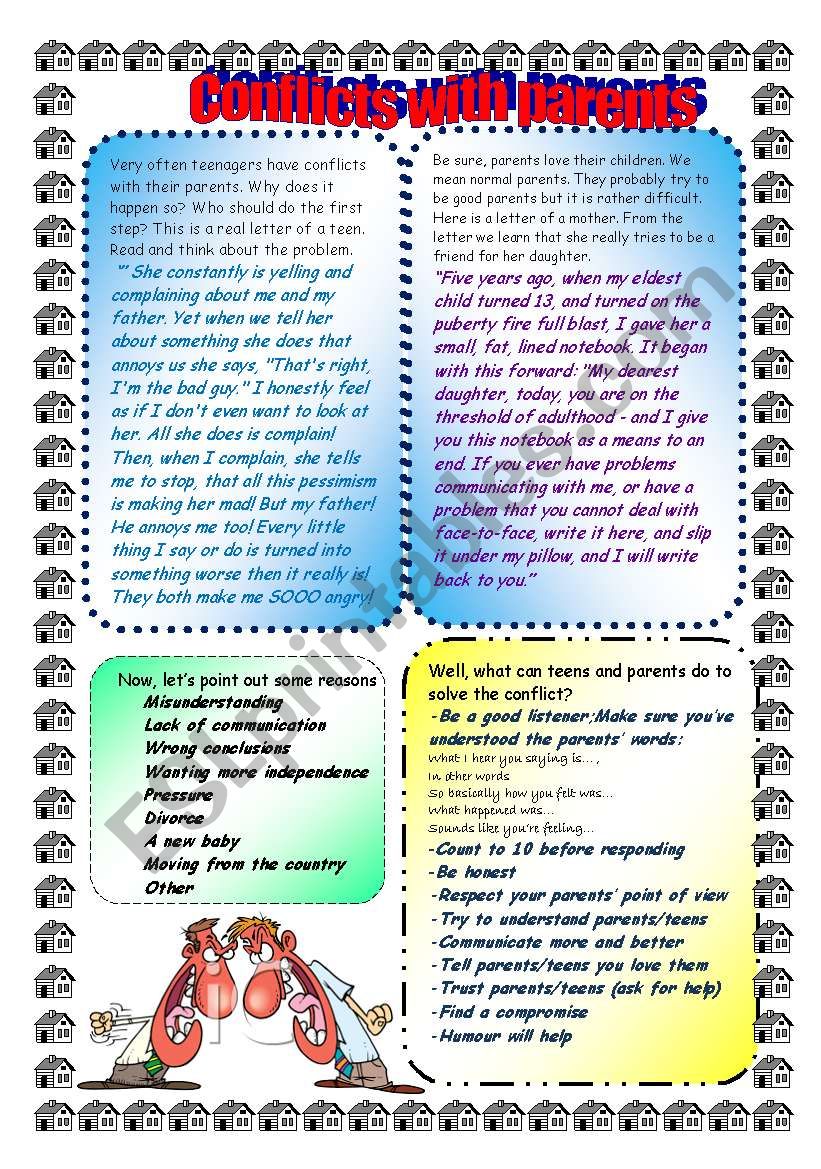 Conflicts with parents
Very often teenagers have conflicts
with their parents. Why does it
happen so? Who should do the first
step? This is a real letter of a teen.
Read and think about the problem.
“” She constantly is yelling and
complaining about me and my
father. Yet when we tell her
about something she does that
annoys us she says, "That's right,
I'm the bad guy." I honestly feel
as if I don't even want to look at
her. All she does is complain!
Then, when I complain, she tells
me to stop, that all this pessimism
is making her mad! But my father!
He annoys me too! Every little
thing I say or do is turned into
something worse then it really is!
They both make me SOOO angry!
Be sure, parents love their children. We
mean normal parents. They probably try to
be good parents but it is rather difficult.
Here is a letter of a mother. From the
letter we learn that she really tries to be a
friend for her daughter.
“Five years ago, when my eldest
child turned 13, and turned on the
puberty fire full blast, I gave her a
small, fat, lined notebook. It began
with this forward: "My dearest
daughter, today, you are on the
threshold of adulthood - and I give
you this notebook as a means to an
end. If you ever have problems
communicating with me, or have a
problem that you cannot deal with
face-to-face, write it here, and slip
it under my pillow, and I will write
back to you.”
Now, let’s point out some reasons
Misunderstanding
Lack of communication
Wrong conclusions
Wanting more independence
Pressure
Divorce
A new baby
Moving from the country
Other
Well, what can teens and parents do to
solve the conflict?
-Be a good listener;Make sure you’ve
understood the parents’ words:
What I hear you saying is…,
In other words
So basically how you felt was…
What happened was…
Sounds like you’re feeling…
-Count to 10 before responding
-Be honest
-Respect your parents’ point of view
-Try to understand parents/teens
-Communicate more and better
-Tell parents/teens you love them
-Trust parents/teens (ask for help)
-Find a compromise
-Humour will help
ESLprintables.com